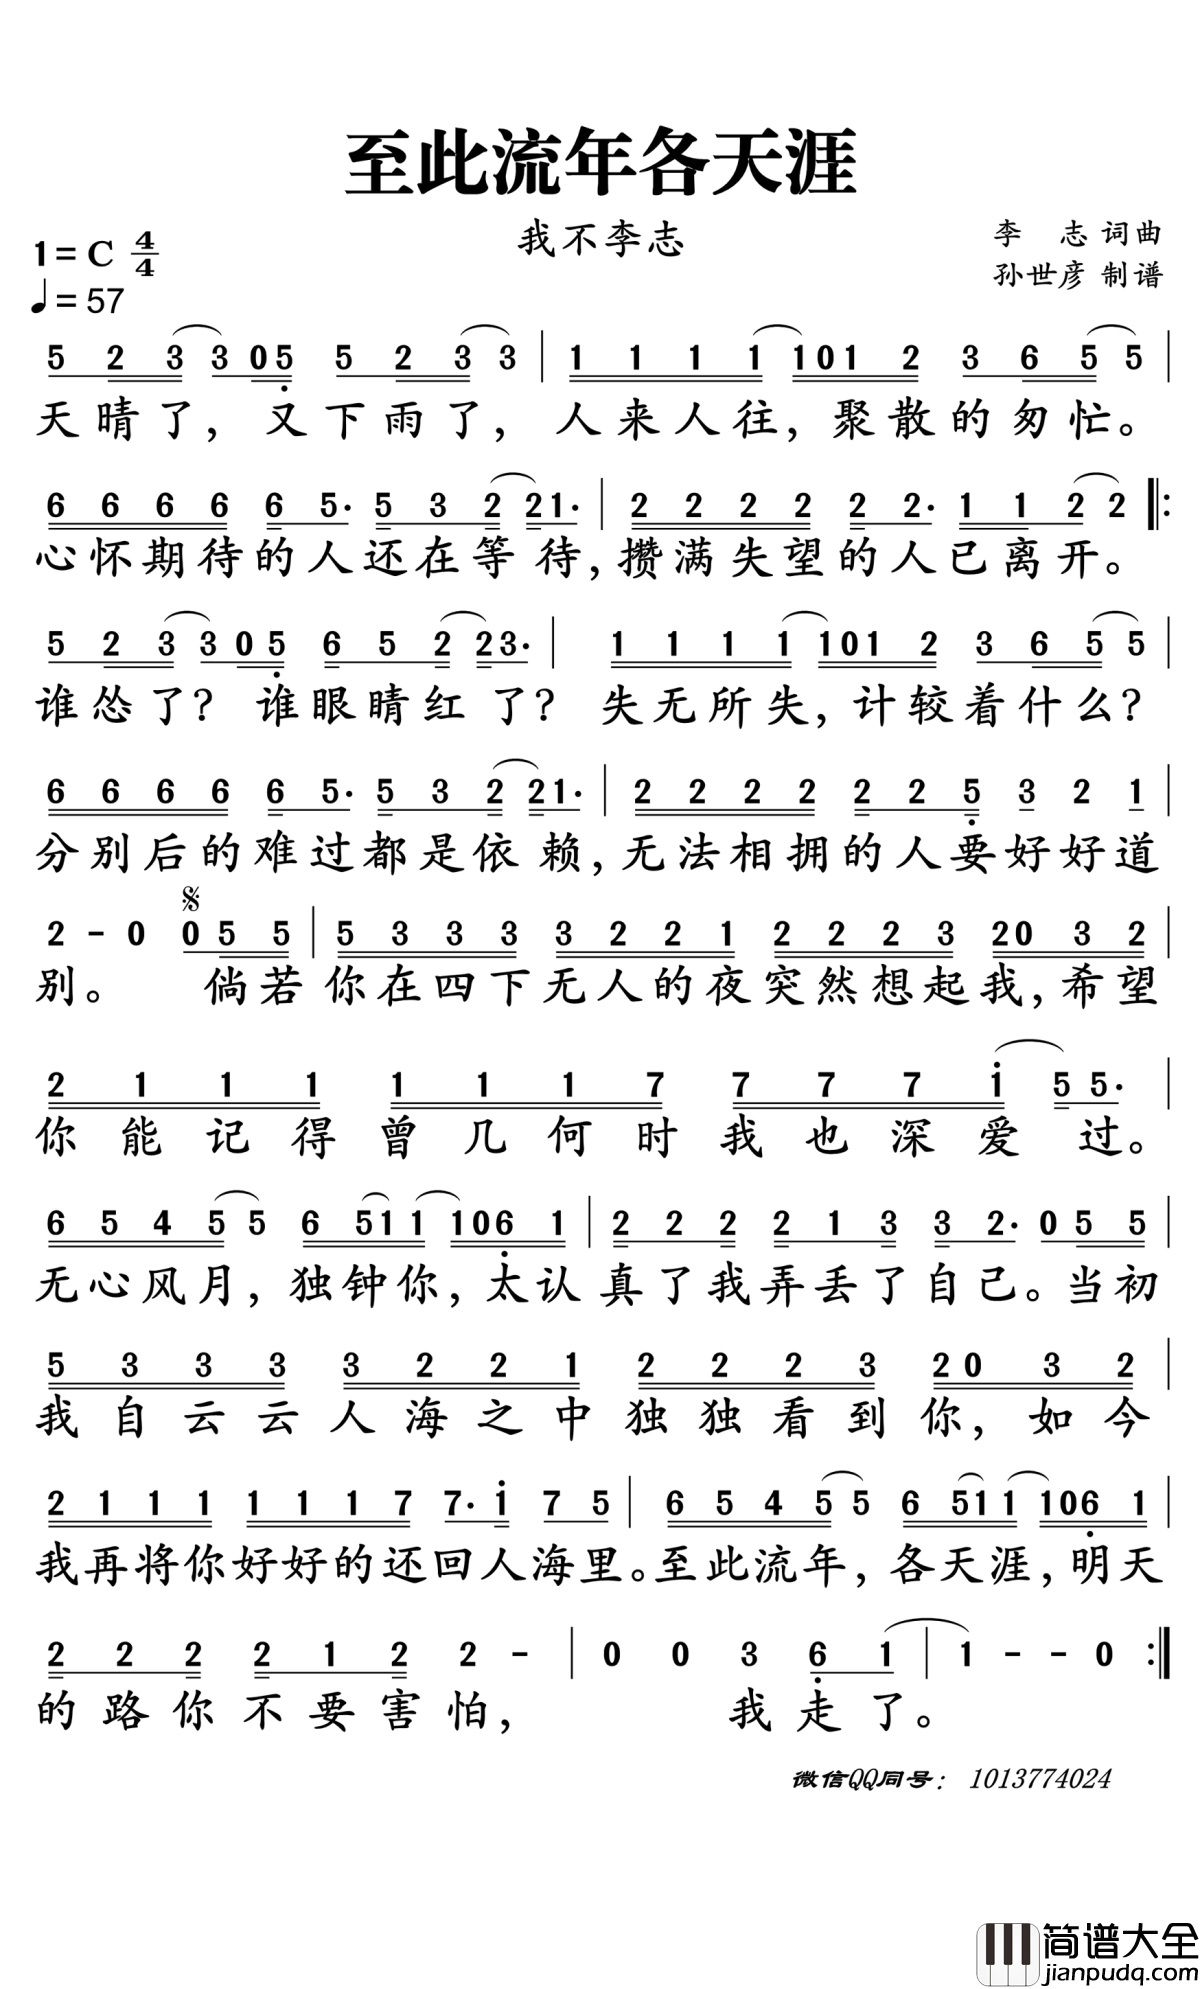 至此流年各天涯
我不李志
1=C 4/4
李 志 词曲
孙世彦 制谱
♩=57
5 2 3 3 0 5 5 2 3 3 | 1 1 1 1 1 0 1 2 3 6 5 5 |
天晴了,又下雨了,人来人往,聚散的匆忙。
6 6 6 6 6 5· 5 3 2 2 1· | 2 2 2 2 2 2· 1 1 2 2 ‖:
心怀期待的人还在等待,攒满失望的人已离开。
5 2 3 3 0 5 6 5 2 2 3· | 1 1 1 1 1 0 1 2 3 6 5 5 |
谁怂了?谁眼睛红了?失无所失,计较着什么?
6 6 6 6 6 5· 5 3 2 2 1· | 2 2 2 2 2 2 5 3 2 1 |
分别后的难过都是依赖,无法相拥的人要好好道
2 - 0 0 5 5 | 5 3 3 3 3 2 2 1 2 2 2 3 2 0 3 2 |
别。倘若你在四下无人的夜突然想起我,希望
2 1 1 1 1 1 1 7 7 7 7 1 5 5· |
你能记得曾几何时我也深爱过。
6 5 4 5 5 6 5 1 1 1 0 6 1 | 2 2 2 2 1 3 3 2· 0 5 5 |
无心风月,独钟你,太认真了我弄丢了自己。当初
5 3 3 3 3 2 2 1 2 2 2 3 2 0 3 2 |
我自云云人海之中独独看到你,如今
2 1 1 1 1 1 1 7 7· 1 7 5 | 6 5 4 5 5 6 5 1 1 1 0 6 1 |
我再将你好好的还回人海里。至此流年,各天涯,明天
2 2 2 2 1 2 2 - | 0 0 3 6 1 | 1 - - 0 :‖
的路你不要害怕,我走了。
微信QQ同号: 1013774024
简谱大全
jianpudq.com